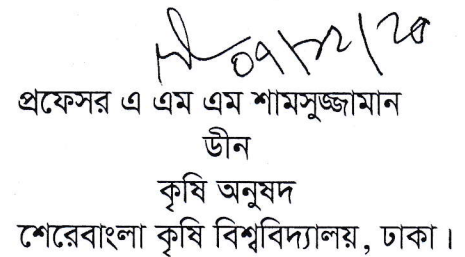 ০৭/১২/২০
প্রফেসর এ এম এম শামসুজ্জামান
ডীন
কৃষি অনুষদ
শেরেবাংলা কৃষি বিশ্ববিদ্যালয়, ঢাকা।